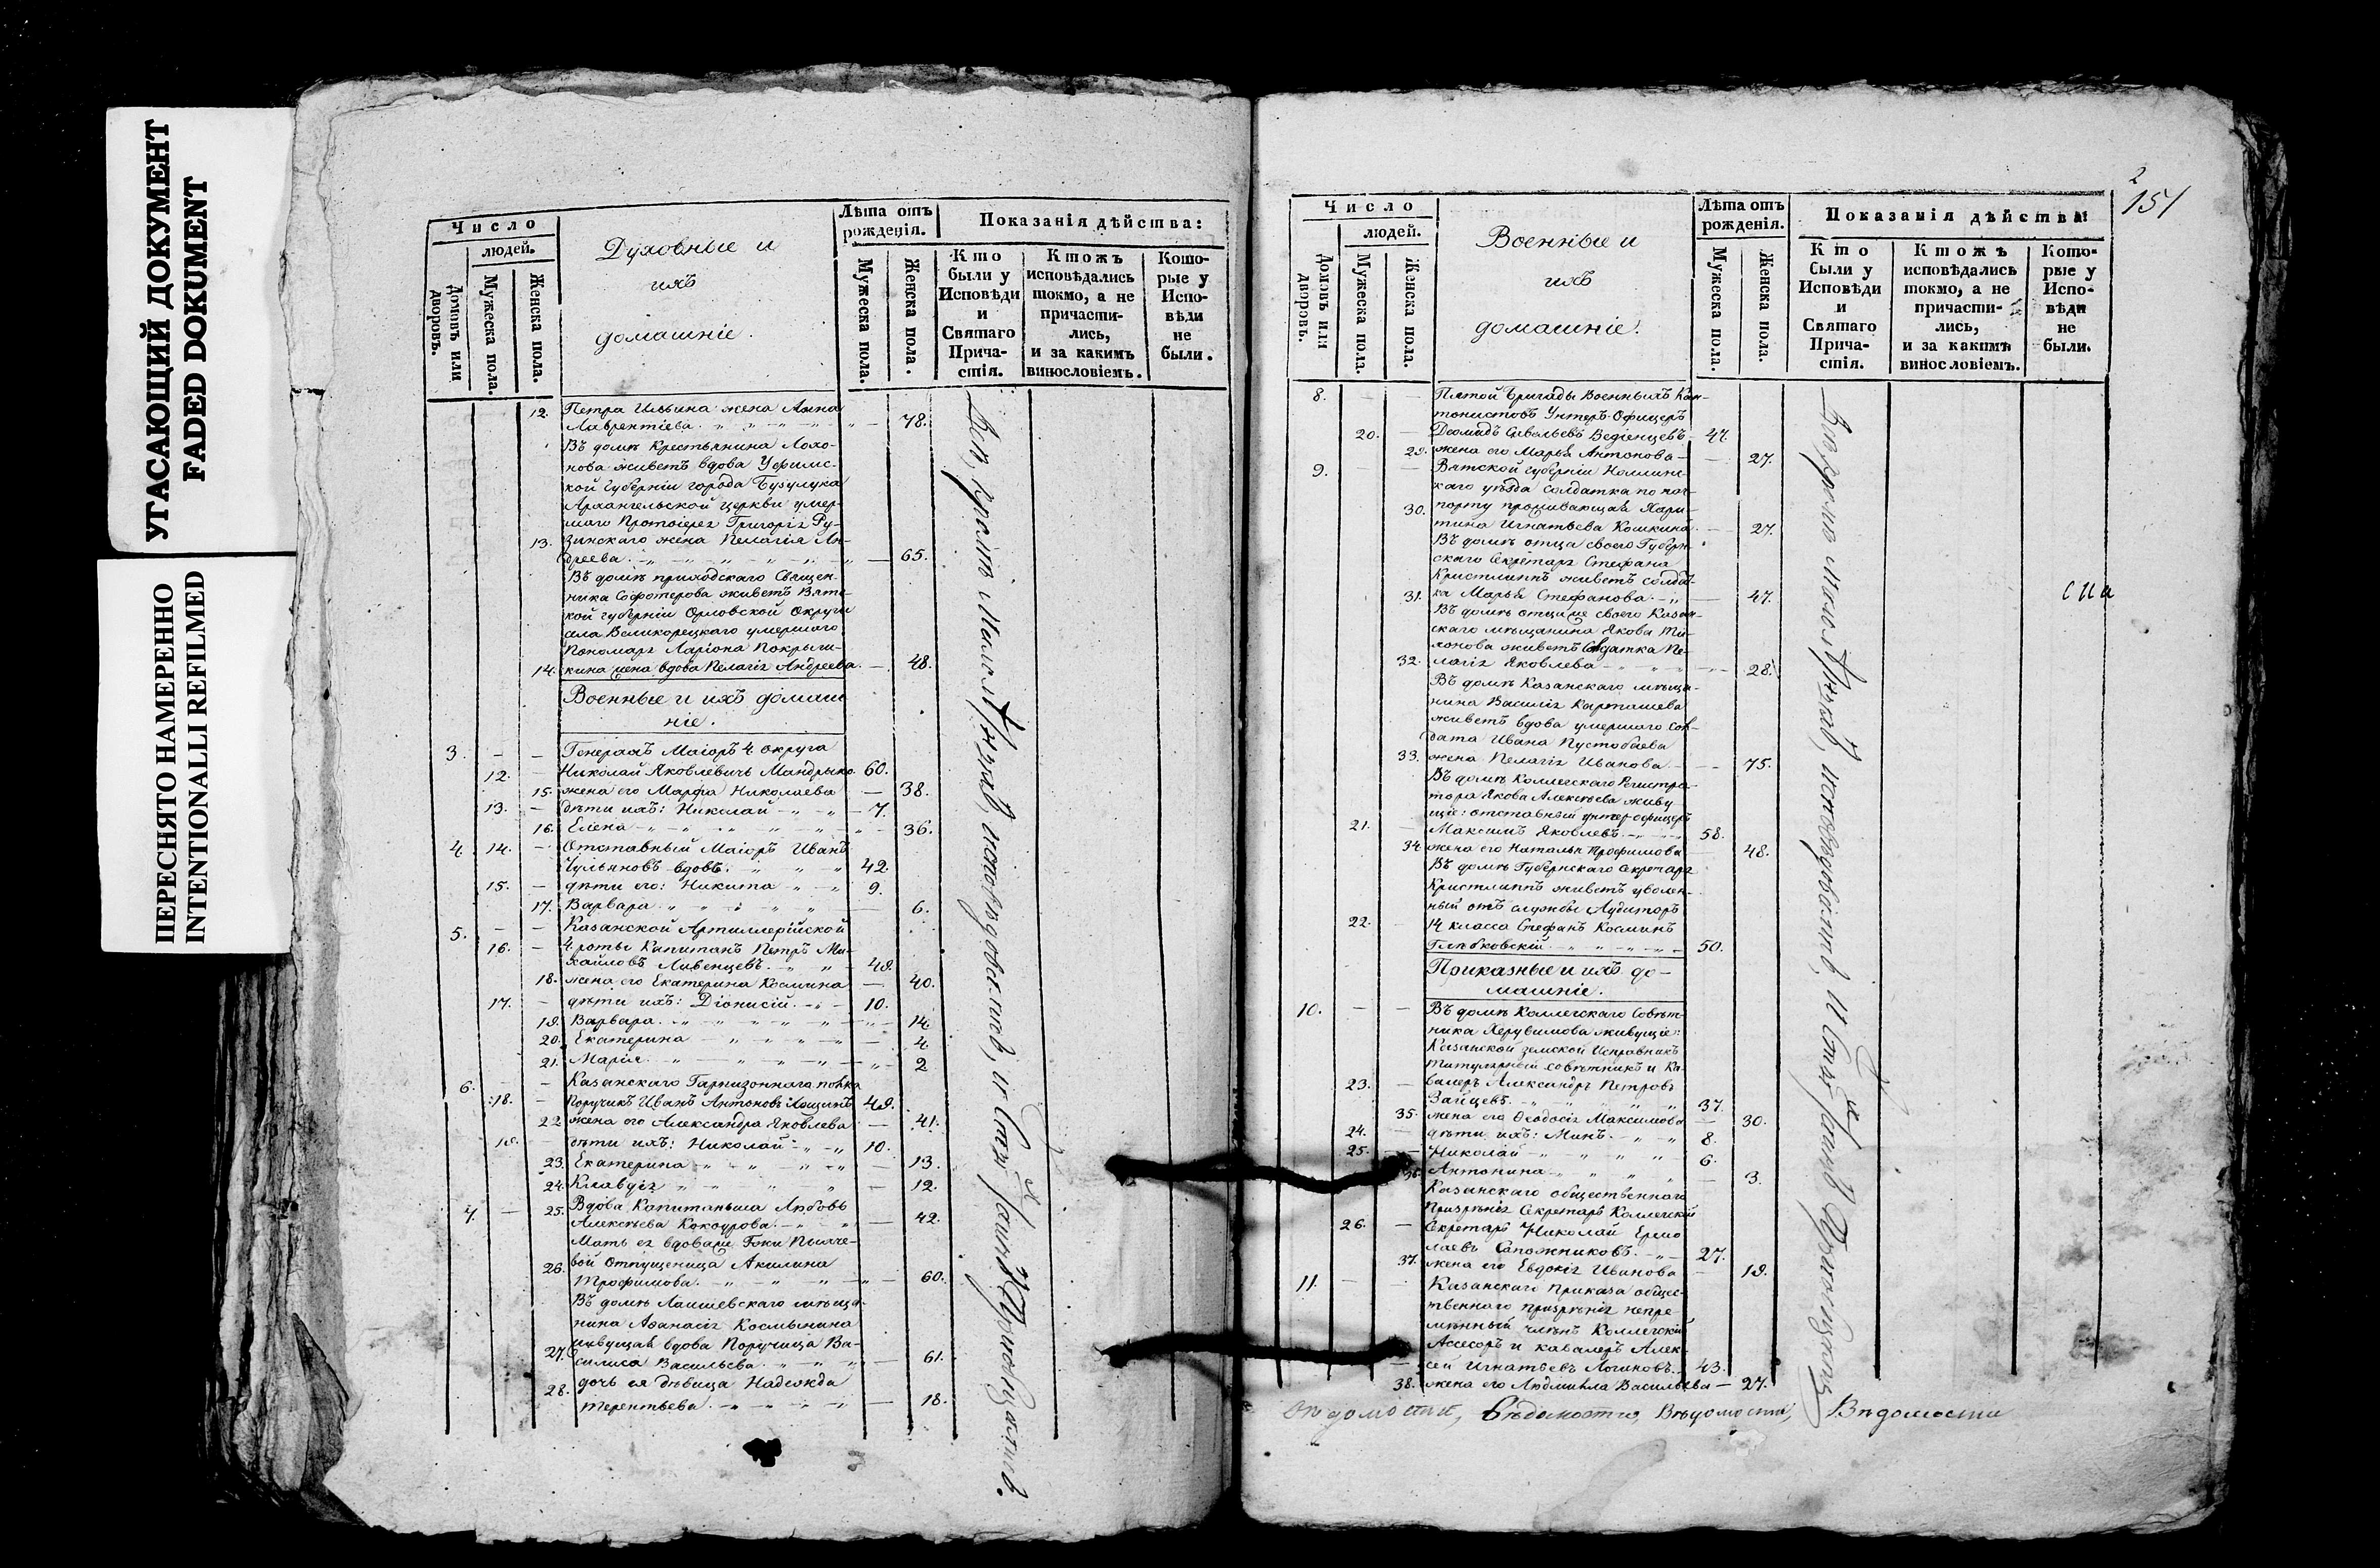 УГАСАЮЩИЙ ДОКУМЕНТ
FADED DOKUMENT
ПЕРЕСНЯТО НАМЕРЕННО
INTENTIONALLI REFILMED
Число
людей.
Домовъ или дворовъ.
Мужеска пола.
Женска пола.
Духовные и
ихъ
домашніе.
Лѣта отъ рожденія.
Мужеска пола.
Женска пола.
Показанія дѣйства:
Кто были у Исповѣди и Святаго Прича-стія.
Ктожъ исповѣдались токмо, а не причасти-лись, и за какимъ винословіемъ.
Кото-рые у Испо-вѣди не были.
12. Петра Ильина жена Анна
Лаврентіева 78.
Въ домѣ крестьянина Лохо-
нова живетъ вдова Уфимс-
кой Губерніи города Бузулука
Архангельской церкви умер-
шаго Протоіерея Григорія Ру-
13. зинскаго жена Пелагія Ан-
дреева 65.
Въ домѣ приходскаго Священ-
ника Софотерова живетъ Вятс-
кой губерніи Орловской Округи
села Великорецкаго умершаго
Пономаря Ларіона Покрыш-
14. кина жена вдова Пелагія Андреева 48.
Военные и ихъ домаш
ніе.
3. – – Генералъ Маіоръ 4. округа
12. – Николай Яковлевичь Мандрыка 60.
15. жена его Марфа Николаева – 38.
13. – дѣти ихъ: Николай 7.
16. Елена 36.
4. 14. – Отставный Маіоръ Иванъ
Чульяновъ вдовъ: 42.
15. – дѣти его: Никита 9.
17. Варвара 6.
5. – – Казанской Артиллерійской
16. – 4. роты Капитанъ Петръ Ми-
хайловъ Ливенцевъ. 49.
18. жена его Екатерина Космина – 40.
17. – дѣти ихъ: Діонисій. 10.
19. Варвара. 14.
20. Екатерина 4.
21. Марія 2
6. – – Казанскаго Гарнизоннаго полка
18. – поручикъ Иванъ Антоновъ 49.
22. жена его Александра Яковлева – 41.
19. – дѣти ихъ: Николай 10.
23. Екатерина – 13.
24. Клавдія – 12.
7. – 25. Вдова Капитанша Любовь
Алексѣева Кокоурова. – 42.
Мать ея вдовая Г-жи
26. вой отпущеница Акилина
Трофимова. 60.
Въ домѣ Лаишевскаго мѣща-
нина Аѳанасія Космынина
27. живущая вдова Поручица Ва-
силиса Васильева. – 61.
28. дочь ея дѣвица Надежда
Терентьева. – 18.
2
151
Число
людей.
Домовъ или дворовъ.
Мужеска пола.
Женска пола.
Военные и
ихъ
домашніе.
Лѣта отъ рожденія.
Мужеска пола.
Женска пола.
Показанія дѣйства:
Кто были у Исповѣди и Святаго Прича-стія.
Ктожъ исповѣдались токмо, а не причасти-лись, и за какимъ винословіемъ.
Кото-рые у Испо-вѣди не были.
8. – – Пятой Бригады Военныхъ Кан-
тонистовъ Унтеръ-Офицеръ
20. – Діомидъ Савельевъ Веденцевъ 47.
29. жена его Марья Антонова 27.
9. – Вятской губерніи Нолинс-
каго уѣзда солдатка по пас-
30. порту проживающая Хари-
тина Игнатьева Кошкина. – 27.
Въ домѣ отца своего Губерн-
скаго Секретаря Стефана
Кристлипъ живетъ солдат-
31. ка Марья Стефанова 47.
Въ домѣ отца же своего Казан-
скаго мѣщанина Якова Ти-
хонова живетъ Солдатка Пе-
32. лагія Яковлева 28.
Въ домѣ Казанскаго мѣща-
нина Василія Карташева
живетъ вдова умершаго Сол-
дата Ивана Пустобаева
33. жена Пелагія Иванова. 75.
Въ домѣ Коллежскаго Регистра-
тора Якова Алексѣева живу
щіе: отставный унтер-офицеръ
21. – Максимъ Яковлевъ. 58.
34. жена его Наталья Трофимова 48.
Въ домѣ Губернскаго Секретаря
Кристлипъ живетъ уволен-
ный отъ службы Аудиторъ
22. – 14 класса Стефанъ Косминъ
Глѣбковскій 50.
Приказные и ихъ до-
машніе.
10. – – Въ домѣ Коллежскаго Совѣт-
ника Херувимова живущіе:
Казанской земской Исправникъ
титулярный совѣтникъ и Ка-
23. – валеръ Александръ Петровъ
Зайцевъ. 37.
35. жена его Ѳеодосія Максимова – 30.
24. – дѣти ихъ: Минъ. 8.
25. – Николай 6.
36. Антонина – 3.
Казанскаго общественнаго
Призрѣнія Секретарь Коллежскій
26. – Секретарь Николай Ермо
лаевъ Сапожниковъ. 27.
37. жена его Евдокія Иванова – 19.
11. – Казанскаго приказа общес-
твеннаго призрѣнія непре
мѣнный членъ Коллежскій
Асесоръ и кавалеръ Алек-
сей Игнатьевъ Логиновъ. 43.
38. жена его Людмила Васильева – 27.
Вѣдомости, Вѣдомости, Вѣдомости, Вѣдомости